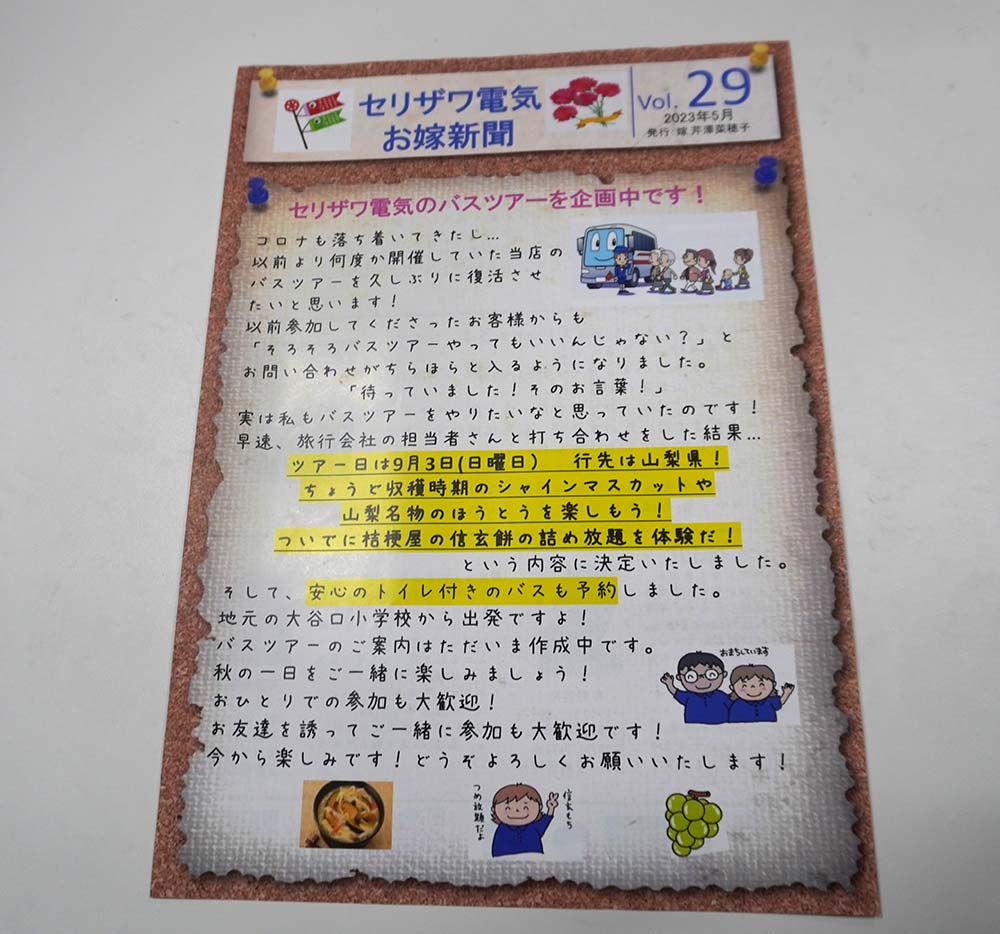 セリザワ電気
お嫁新聞
Vol. 29
2023年5月
発行:嫁 芹澤菜穂子
セリザワ電気のバスツアーを企画中です！
コロナも落ち着いてきたし…
以前より何度か開催していた当店の
バスツアーを久しぶりに復活させ
たいと思います！
以前参加してくださったお客様からも
「そろそろバスツアーやってもいいんじゃない？」と
お問い合わせがちらほらと入るようになりました。
「待っていました！そのお言葉！」
実は私もバスツアーをやりたいなと思っていたのです！
早速、旅行会社の担当者さんと打ち合わせをした結果…
ツアー日は9月3日(日曜日)　行先は山梨県！
ちょうど収穫時期のシャインマスカットや
山梨名物のほうとうを楽しもう！
ついでに桔梗屋の信玄餅の詰め放題を体験だ！
という内容に決定いたしました。
そして、安心のトイレ付きのバスも予約しました。
地元の大谷口小学校から出発ですよ！
バスツアーのご案内はただいま作成中です。
秋の一日をご一緒に楽しみましょう！
おまちしています
おひとりでの参加も大歓迎！
お友達を誘ってご一緒に参加も大歓迎です！
今から楽しみです！どうぞよろしくお願いいたします！
信玄もち
つめ放題だよ